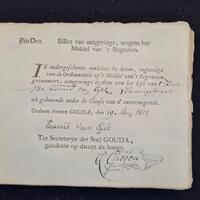 Pro Deo.
Billet van aangevinge, wegens het
Middel van 't Begraven.
IK ondergeschreven verklare by dezen, ingevolge
van de Ordonnantie op 't Middel van 't Begraven,
geëmaneert, aangevinge te doen van het Lyk van
als gehorende onder de Classis van d' onvermogende.
Gedaan binnen GOUDA, den 19 Aug
Teunis van Eyk
Ter Secretarye der Stad GOUDA,
getekent op datum als boven.